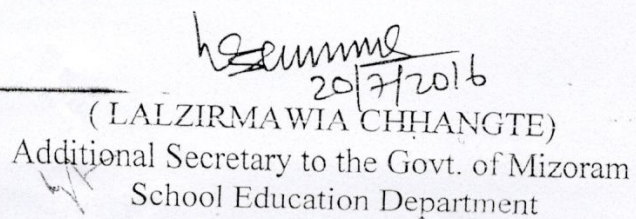 20/7/2016
( LALZIRMAWIA CHHANGTE)
Additional Secretary to the Govt. of Mizoram
School Education Department